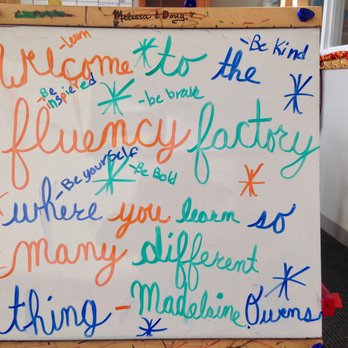 Melissa & Doug
-learn
-Be Kind
Welcome to the
-Be
inspiered
-be brave
fluency factory
-Be yourself
-Be Bold
where you learn so
many different
thing - Madelaine Owens